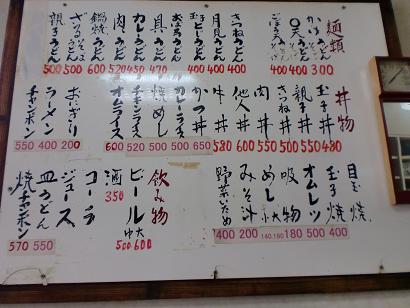 麺類
かけうどん 300
〇天うどん 400
ごぼう天うどん 400
きつねうどん 400
月見うどん 400
玉子とじうどん 400
おぼろうどん
具うどん 470
カレーうどん 450
肉うどん 520
鍋焼うどん 600
ざるうどん 500
親子うどん 500
丼物
玉子丼 480
親子丼 550
きつね丼 500
肉丼 550
他人丼 600
牛丼 580
かつ丼 650
カレーライス 500
焼めし 500
チキンライス 520
オムライス 600
おにぎり 200
ラーメン 400
チャンポン 550
目玉焼
玉子焼 400
オムレツ 500
吸物 180
めし 大小 140.160
みそ汁 200
野菜いため 400
飲み物
ビール 大 600 中 500
酒 350
コーラ
ジュース
皿うどん 550
焼チャンポン 570